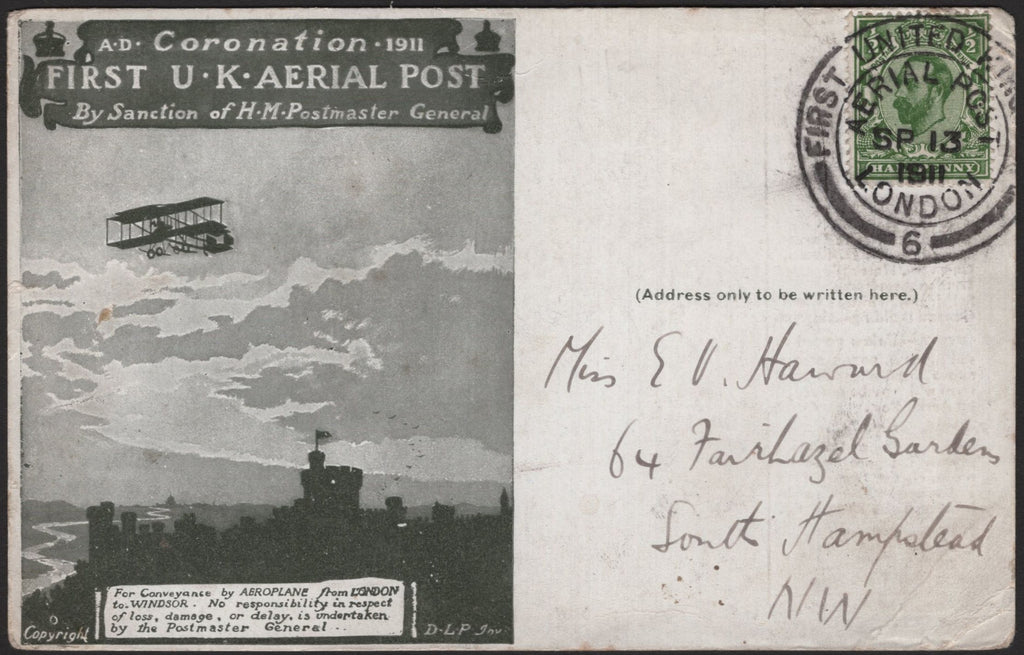 A·D· Coronation · 1911
FIRST U·K·AERIAL POST
By Sanction of H·M·Postmaster General
For Conveyance by AEROPLANE from LONDON
to WINDSOR. No responsibility in respect
of loss, damage, or delay, is undertaken
by the Postmaster General...
Copyright
D·L·P Inv
FIRST UNITED
AERIAL POST
SP 13
1911
LONDON
6
HALFPENNY
(Address only to be written here.)
Miss E V. Haward
64 Fairhazel Gardens
South Hampstead
NW